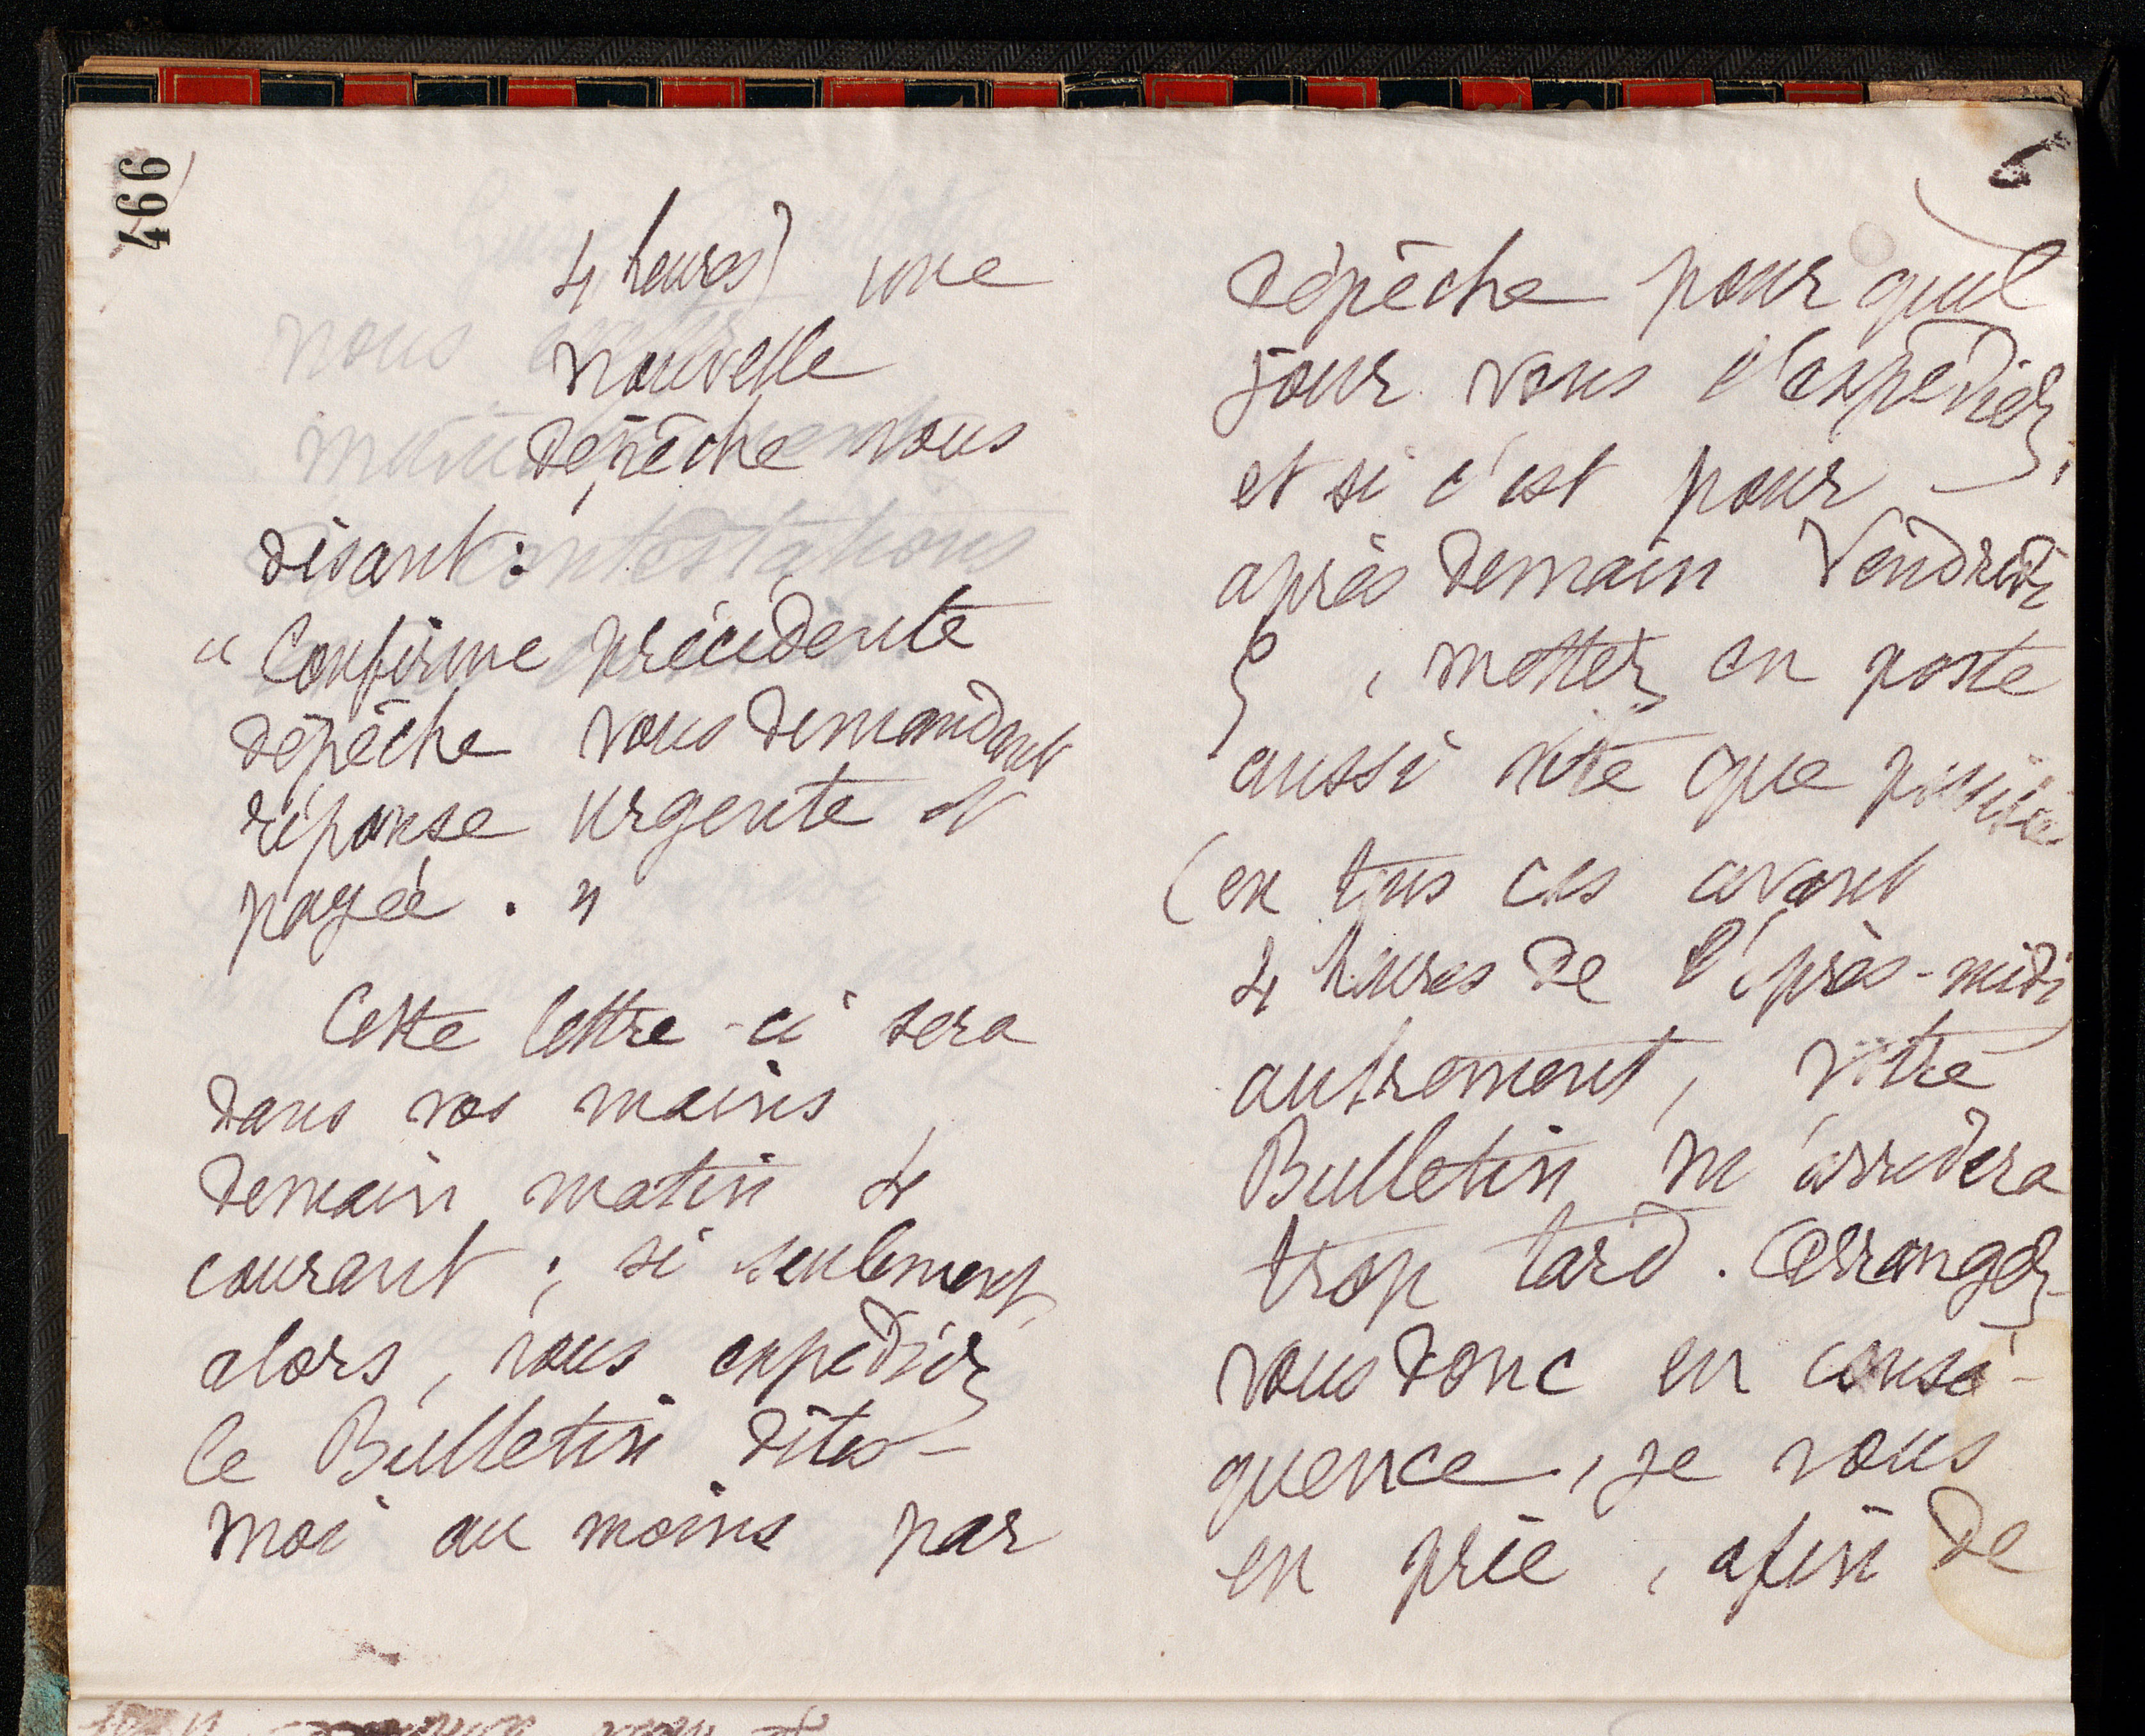 466
4 heures) une
nouvelle
dépêche vous
disant :
" Confirme précédente
dépêche vous demandant
réponse urgente et
payée . "
Cette lettre-ci sera
dans vos mains
demain matin 4
courant ; si seulement
alors, vous expédiez
le Bulletin dites-
moi au moins par
6
dépêche pour quel
jour vous l'expédiez,
et si c'est pour
après demain Vendredi
5, mettez en poste
aussi vite que possible
(en tous cas avant
4 heures de l'après-midi)
autrement, votre
Bulletin m'arrivera
trop tard. Arrangez-
vous donc en consé-
quence, je vous
en prie, afin de